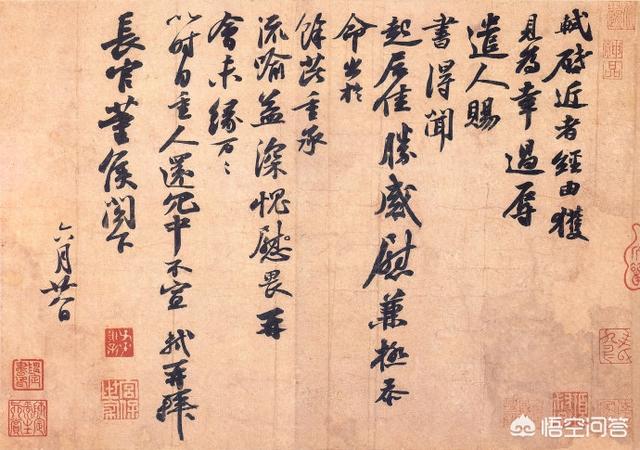 軾啓近者經由獲
見為幸過辱
遣人賜
書得聞
起居佳勝感慰兼極忝
命出於
餘芘重承
流喻益深愧慰畏再
會未緣万〻
以时自重人還冗中不宣軾再拜
長官董侯閣下
六月廿八日
悟空问答